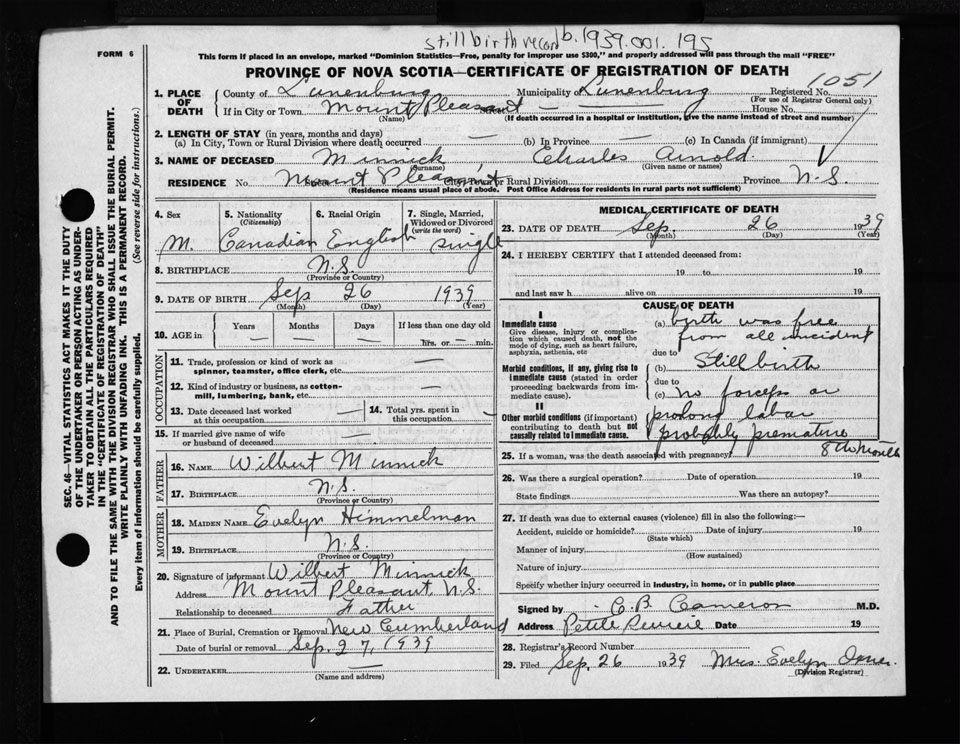 still birth record b. 1939.001.195
FORM 6
This form if placed in an envelope, marked "Dominion Statistics—Free, penalty for improper use $300," and properly addressed will pass through the mail "FREE"
PROVINCE OF NOVA SCOTIA—CERTIFICATE OF REGISTRATION OF DEATH
1051
1. PLACE OF DEATH
County of Lunenburg Municipality Lunenburg Registered No.
(For use of Registrar General only)
If in City or Town Mount Pleasant Street — — House No.
(Name) (If death occurred in a hospital or institution, give the name instead of street and number)
2. LENGTH OF STAY (in years, months and days)
(a) In City, Town or Rural Division where death occurred — (b) In Province — (c) In Canada (if immigrant)
3. NAME OF DECEASED Minnick, Charles Arnold.
(Surname) (Given name or names)
RESIDENCE No. Mount Pleasant City, Town or Rural Division Province N.S.
(Residence means usual place of abode. Post Office Address for residents in rural parts not sufficient)
4. Sex M.
5. Nationality (Citizenship) Canadian
6. Racial Origin English
7. Single, Married, Widowed or Divorced (write the word) single
8. BIRTHPLACE N.S.
(Province or Country)
9. DATE OF BIRTH Sep 26 1939
(Month) (Day) (Year)
10. AGE in Years — Months — Days — If less than one day old hrs. or — min.
OCCUPATION
11. Trade, profession or kind of work as spinner, teamster, office clerk, etc. —
12. Kind of industry or business, as cotton-mill, lumbering, bank, etc. —
13. Date deceased last worked at this occupation —
14. Total yrs. spent in this occupation —
15. If married give name of wife or husband of deceased —
FATHER
16. NAME Wilbert Minnick
17. BIRTHPLACE N.S.
(Province or Country)
MOTHER
18. MAIDEN NAME Evelyn Himmelman
19. BIRTHPLACE N.S.
(Province or Country)
20. Signature of informant Wilbert Minnick
Address Mount Pleasant, N.S.
Relationship to deceased Father
21. Place of Burial, Cremation or Removal New Cumberland
Date of burial or removal Sep. 27, 1939
22. UNDERTAKER —
(Name and address)
MEDICAL CERTIFICATE OF DEATH
23. DATE OF DEATH Sep. 26 1939
(Month) (Day) (Year)
24. I HEREBY CERTIFY that I attended deceased from:
19 to 19
and last saw h alive on 19
CAUSE OF DEATH
I
Immediate cause
Give disease, injury or complication which caused death, not the mode of dying, such as heart failure, asphyxia, asthenia, etc
Morbid conditions, if any, giving rise to immediate cause (stated in order proceeding backwards from immediate cause).
II
Other morbid conditions (if important) contributing to death but not causally related to immediate cause.
(a) birth was free
from all accident
due to
(b) Stillbirth
due to
(c) no forceps or
prolong labar
probably premature
8th month
25. If a woman, was the death associated with pregnancy?
26. Was there a surgical operation? Date of operation 19
State findings Was there an autopsy?
27. If death was due to external causes (violence) fill in also the following:—
Accident, suicide or homicide? Date of injury 19
(State which)
Manner of injury
(How sustained)
Nature of injury
Specify whether injury occurred in industry, in home, or in public place
Signed by C. B. Cameron M.D.
Address Petite Riviere Date 19
28. Registrar's Record Number
29. Filed Sep. 26 1939 Mrs. Evelyn
(Division Registrar)
SEC. 46—VITAL STATISTICS ACT MAKES IT THE DUTY
OF THE UNDERTAKER OR PERSON ACTING AS UNDER-
TAKER TO OBTAIN ALL THE PARTICULARS REQUIRED
IN THE "CERTIFICATE OF REGISTRATION OF DEATH"
AND TO FILE THE SAME WITH THE DIVISION REGISTRAR WHO SHALL ISSUE THE BURIAL PERMIT.
WRITE PLAINLY WITH UNFADING INK. THIS IS A PERMANENT RECORD.
Every item of information should be carefully supplied. (See reverse side for instructions.)